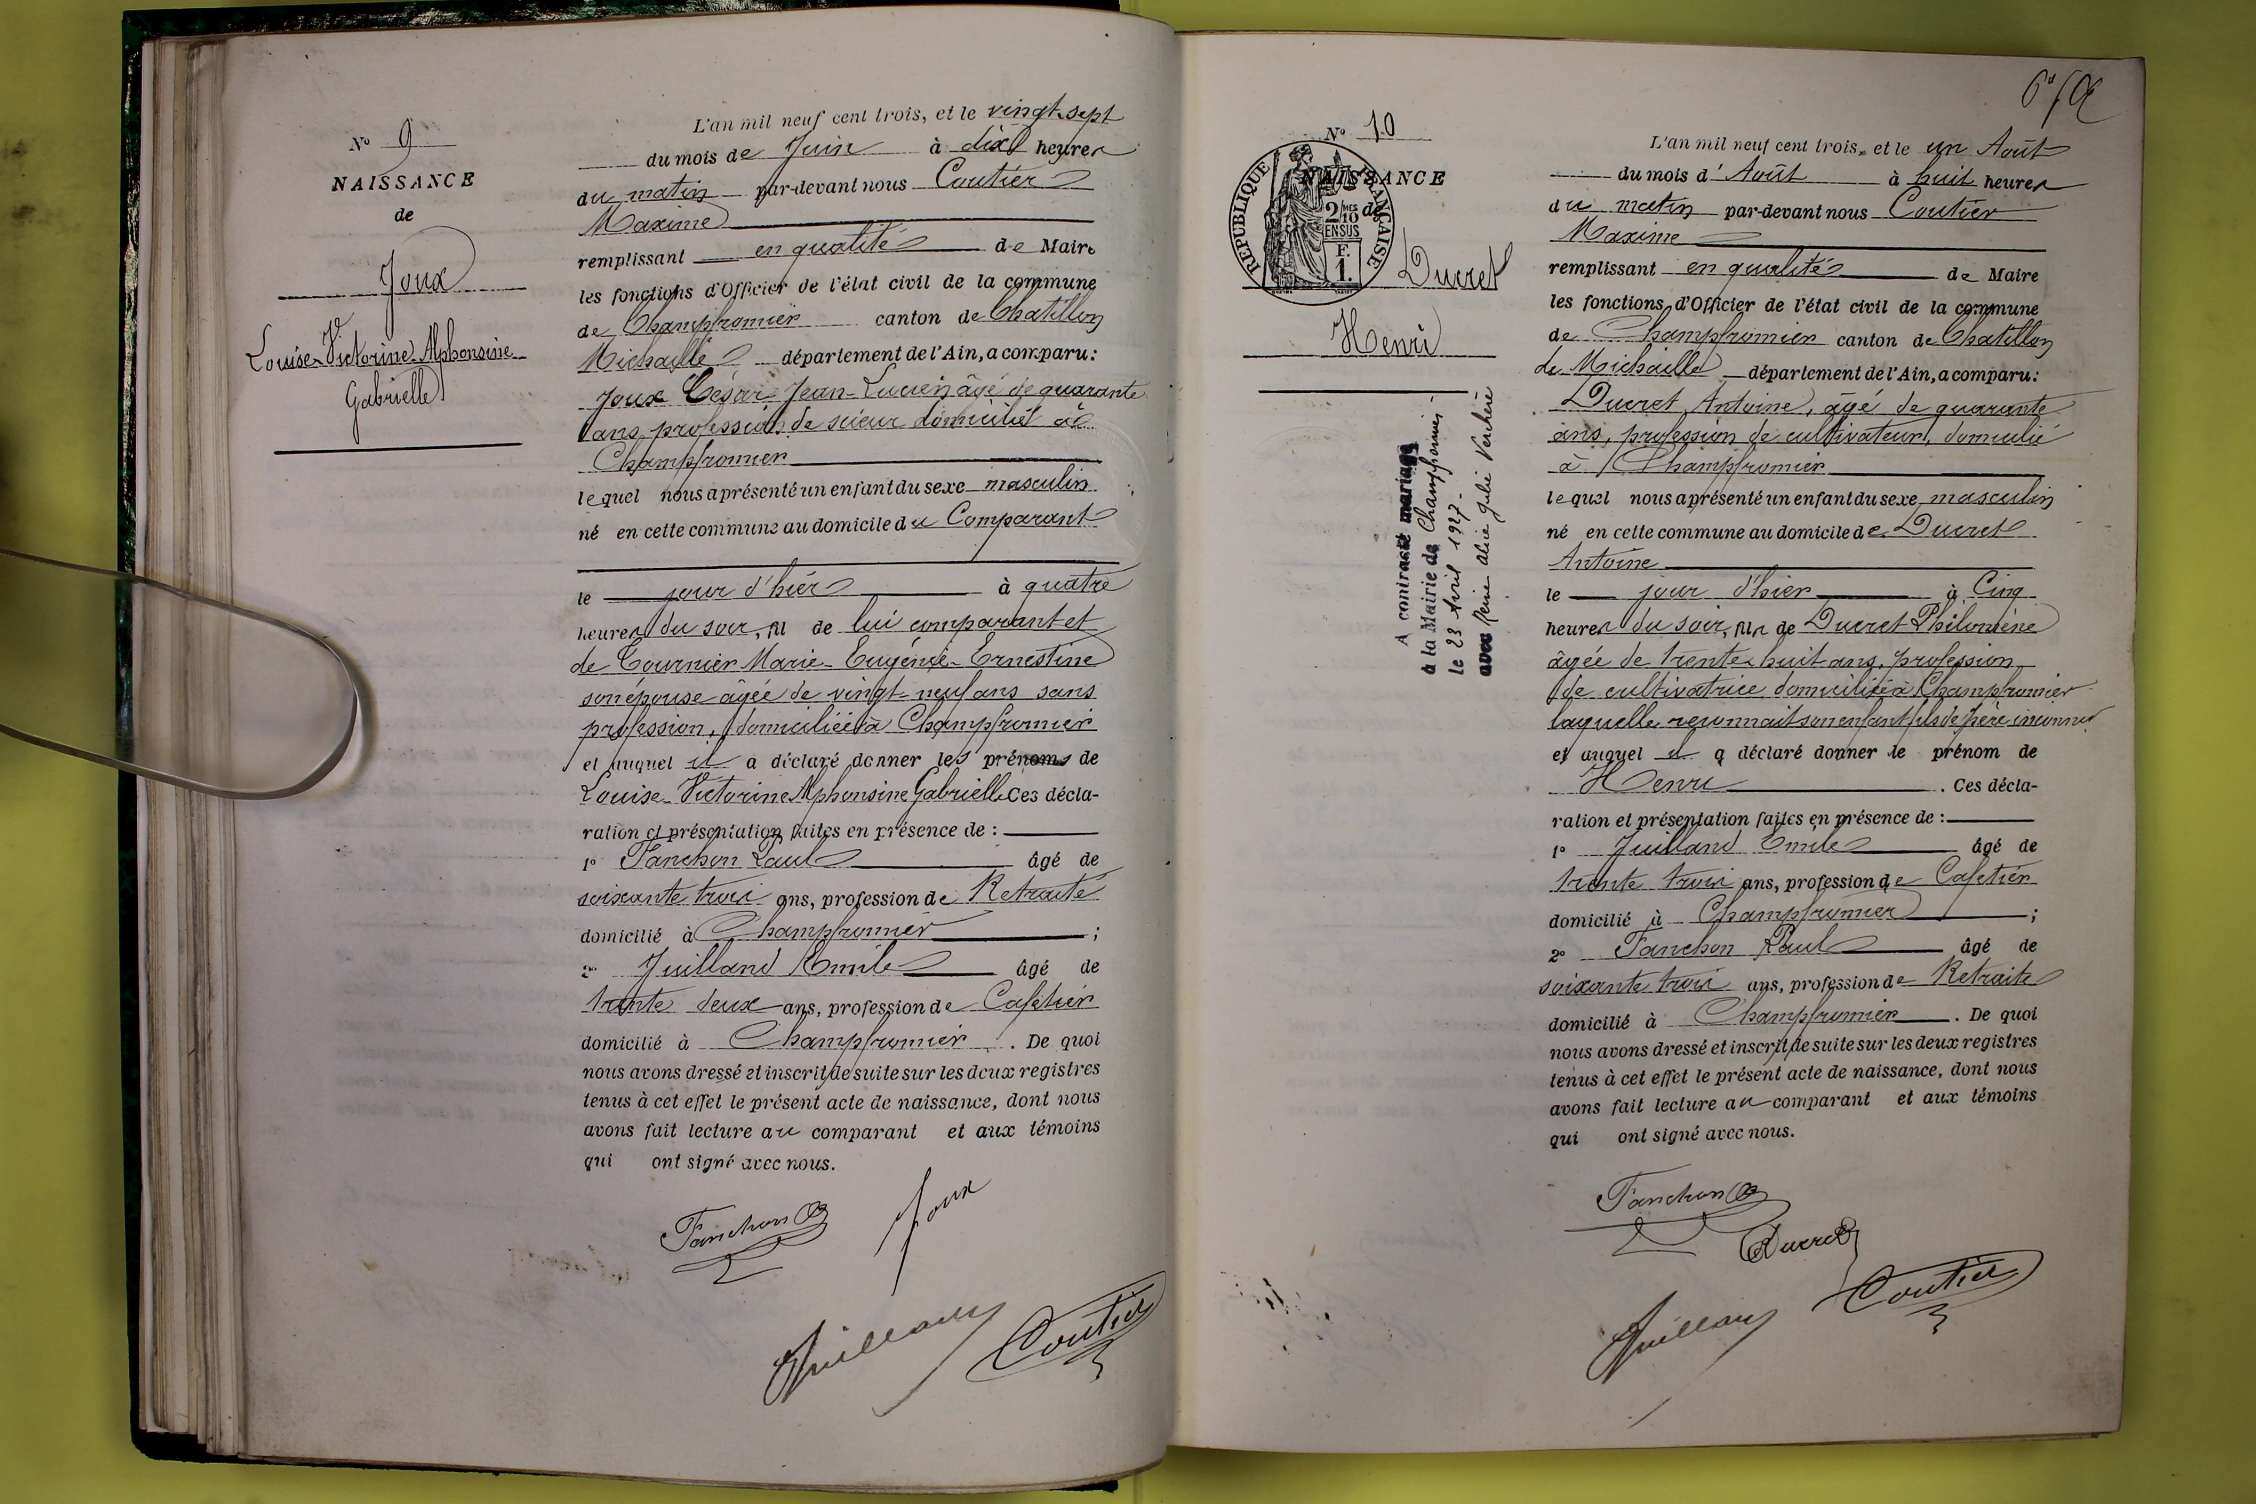 No 9
NAISSANCE
de
Joux
Louise-Victorine-Alphonsine
Gabrielle
L'an mil neuf cent trois, et le vingt-sept
du mois de Juin à dix heures
du matin par-devant nous Coutier
Maxime
remplissant en qualité de Maire
les fonctions d'Officier de l'état civil de la commune
de Champfromier canton de Chatillon
Michaille département de l'Ain, a comparu:
Joux César Jean-Lucien âgé de quarante
ans, profession de scieur domicilié à
Champfromier
lequel nous a présenté un enfant du sexe masculin
né en cette commune au domicile du Comparant
le jour d'hier à quatre
heures du soir, fil de lui comparant et
de Tournier Marie-Eugénie-Ernestine
son épouse âgée de vingt-neuf ans sans
profession, domiciliée à Champfromier
et auquel il a déclaré donner les prénoms de
Louise-Victorine Alphonsine Gabrielle Ces décla-
ration et présentation faites en présence de :
1o Fanchon Paul âgé de
soixante trois ans, profession de Retraité
domicilié à Champfromier ;
2o Juilland Emile âgé de
trente deux ans, profession de Cafetier
domicilié à Champfromier . De quoi
nous avons dressé et inscrit de suite sur les deux registres
tenus à cet effet le présent acte de naissance, dont nous
avons fait lecture au comparant et aux témoins
qui ont signé avec nous.
Fanchon Joux
Juilland Coutier
6e
No 10
NAISSANCE
de
RÉPUBLIQUE FRANÇAISE
2/10 MES
EN SUS
F.
1.
Ducret
Henri
A contracté mariage
à la Mairie de Champfromier
le 23 Avril 1927
avec Reine Alice Julie Verchère
L'an mil neuf cent trois, et le un Août
du mois d'Août à huit heures
du matin par-devant nous Coutier
Maxime
remplissant en qualité de Maire
les fonctions d'Officier de l'état civil de la commune
de Champfromier canton de Chatillon
de Michaille département de l'Ain, a comparu:
Ducret Antoine, âgé de quarante
ans, profession de cultivateur, domicilié
à Champfromier
lequel nous a présenté un enfant du sexe masculin
né en cette commune au domicile de Ducret
Antoine
le jour d'hier à Cinq
heures du soir, fils de Ducret Philomène
âgée de trente huit ans, profession
de cultivatrice domiciliée à Champfromier
laquelle reconnait son enfant fils de père inconnu
et auquel il a déclaré donner le prénom de
Henri . Ces décla-
ration et présentation faites en présence de :
1o Juilland Emile âgé de
trente trois ans, profession de Cafetier
domicilié à Champfromier ;
2o Fanchon Paul âgé de
soixante trois ans, profession de Retraité
domicilié à Champfromier . De quoi
nous avons dressé et inscrit de suite sur les deux registres
tenus à cet effet le présent acte de naissance, dont nous
avons fait lecture au comparant et aux témoins
qui ont signé avec nous.
Fanchon
Ducret
Juilland Coutier